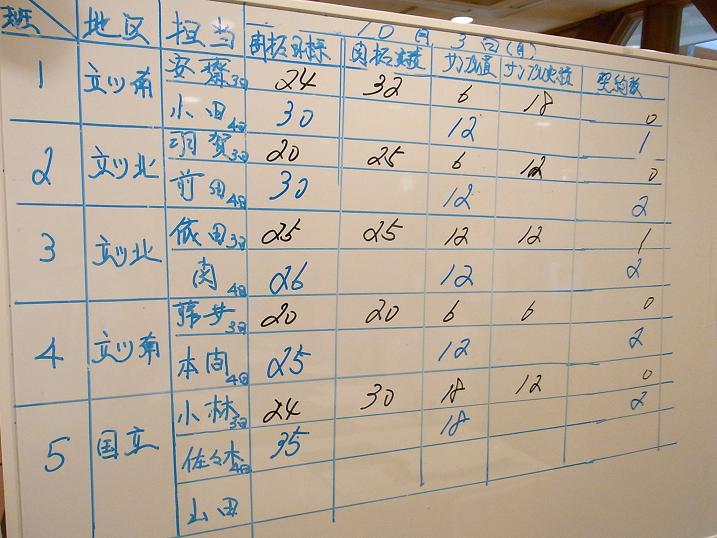 10月 3日(月)
班 地区 担当 開拓目標 開拓実績 サンプル値 サンプル実績 契約数
1 立川南 安齋3日 24 32 6 18 0
小田4日 30 12 1
2 立川北 羽賀3日 20 25 6 12 0
前田4日 30 12 2
3 立川北 依田3日 25 25 12 12 1
関4日 26 12 2
4 立川南 3日 20 20 6 6 0
本間4日 25 12 2
5 国立 小林3日 24 30 18 12 0
佐々木4日 35 18 2
山田